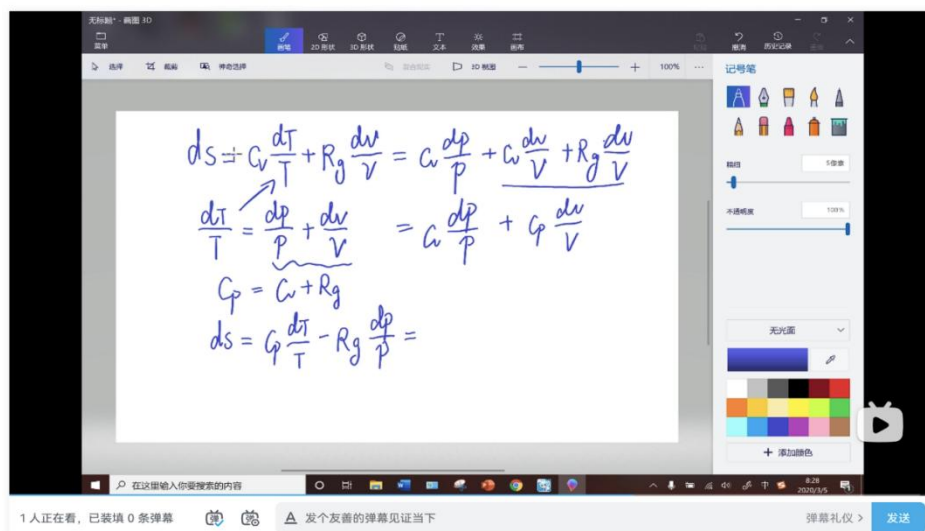 无标题* - 画图 3D
菜单
画笔
2D 形状
3D 形状
贴纸
文本
效果
画布
撤消
历史记录
选择
裁剪
神奇选择
3D 视图
100%
记号笔
粗细
5像素
不透明度
100%
无光面
+ 添加颜色
ds = Cv dT/T + Rg dv/v = Cv dp/p + Cv dv/v + Rg dv/v
dT/T = dp/p + dv/v = Cv dp/p + Cp dv/v
Cp = Cv + Rg
ds = Cp dT/T - Rg dp/p =
在这里输入你要搜索的内容
中
8:26
2020/3/5
1 人正在看，已装填 0 条弹幕
发个友善的弹幕见证当下
弹幕礼仪 >
发送